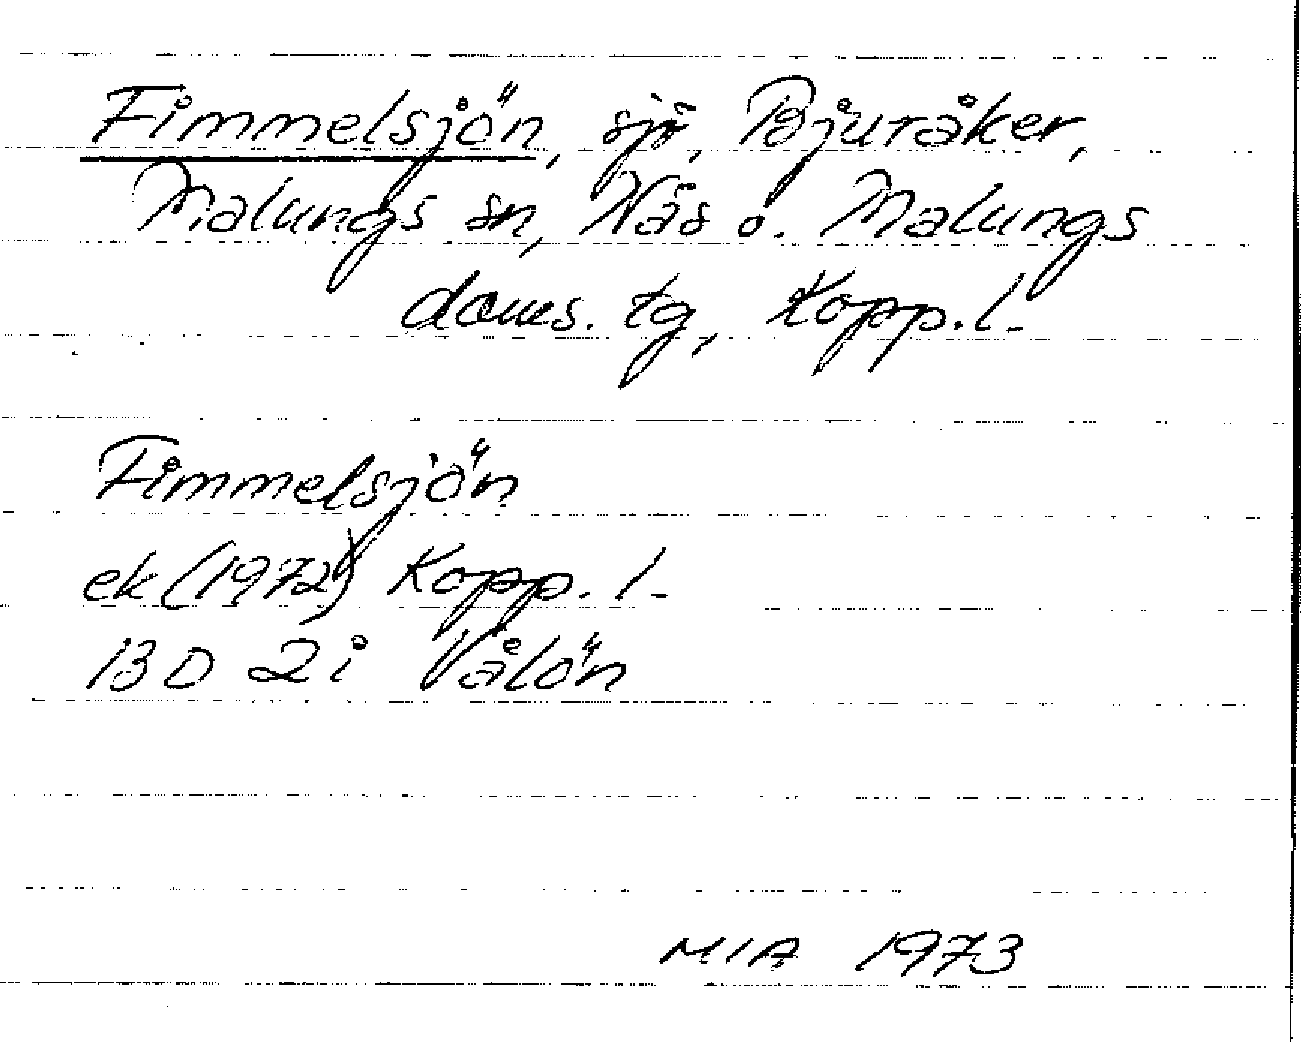 Fimmelsjön, sjö, Bjuråker,
Malungs sn, Näs o. Malungs
doms. tg, Kopp. l.
Fimmelsjön
ek (1972) Kopp. l.
13 D 2 i Vålön
MIA 1973